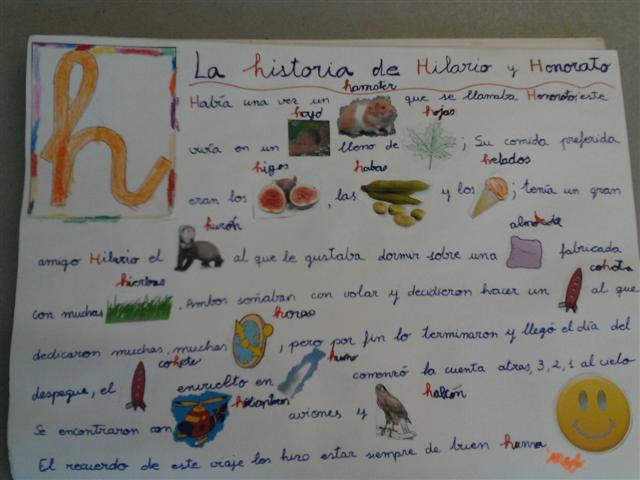 h
La historia de Hilario y Honorato
hamster
Había una vez un que se llamaba Honorato, este
hoyo hojas
vivía en un lleno de ; Su comida preferida
higos habas helados
eran los , las y los ; tenía un gran
hurón almohada
amigo Hilario el al que le gustaba dormir sobre una fabricada
hierbas cohete
con muchas . Ambos soñaban con volar y decidieron hacer un al que
horas
dedicaron muchas, muchas , pero por fin lo terminaron y llegó el día del
cohete humo
despegue, el envuelto en comenzó la cuenta atras, 3, 2, 1 al cielo
helicóptero halcón
Se encontraron con aviones y
El recuerdo de este viaje los hizo estar siempre de buen